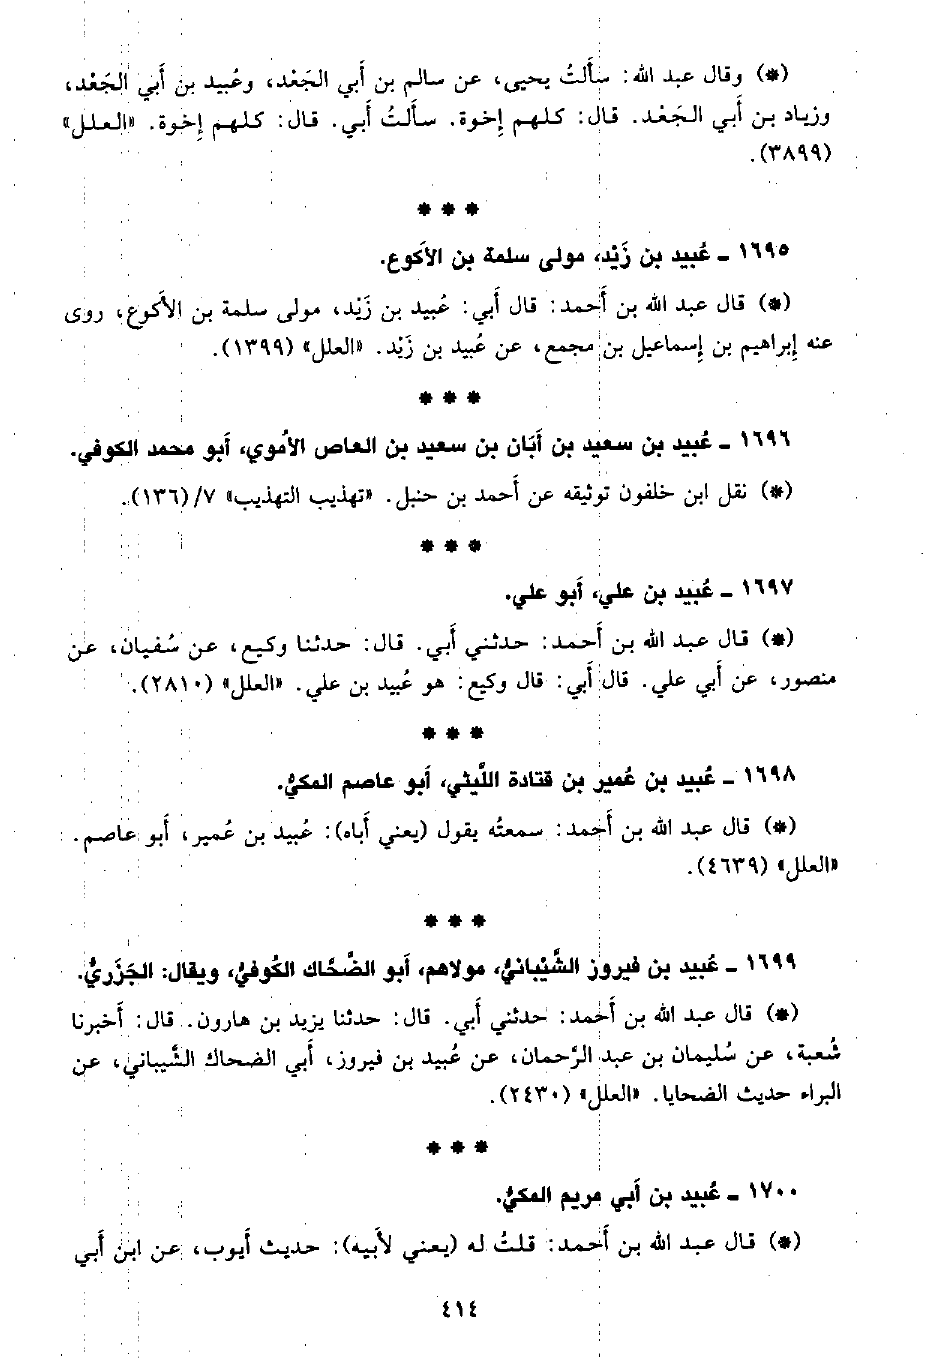 (*) وقال عبد الله: سألتُ يحيى، عن سالم بن أبي الجَعْد، وعُبيد بن أبي الجَعْد،
وزياد بن أبي الجَعْد. قال: كلهم إخوة. سألتُ أبي. قال: كلهم إخوة. «العلل»
(٣٨٩٩).
* * *
١٦٩٥ ـ عُبيد بن زَيْد، مولى سلمة بن الأكوع.
(*) قال عبد الله بن أحمد: قال أبي: عُبيد بن زَيْد، مولى سلمة بن الأكوع، روى
عنه إبراهيم بن إسماعيل بن مجمع، عن عُبيد بن زَيْد. «العلل» (١٣٩٩).
* * *
١٦٩٦ ـ عُبيد بن سعيد بن أبَان بن سعيد بن العاص الأموي، أبو محمد الكوفي.
(*) نقل ابن خلفون توثيقه عن أحمد بن حنبل. «تهذيب التهذيب» ٧/ (١٣٦).
* * *
١٦٩٧ ـ عُبيد بن علي، أبو علي.
(*) قال عبد الله بن أحمد: حدثني أبي. قال: حدثنا وكيع، عن سُفيان، عن
منصور، عن أبي علي. قال أبي: قال وكيع: هو عُبيد بن علي. «العلل» (٢٨١٠).
* * *
١٦٩٨ ـ عُبيد بن عُمير بن قتادة اللَّيثي، أبو عاصم المكيُّ.
(*) قال عبد الله بن أحمد: سمعتُه يقول (يعني أباه): عُبيد بن عُمير، أبو عاصم.
«العلل» (٤٦٣٩).
* * *
١٦٩٩ ـ عُبيد بن فيروز الشَّيْبانيُّ، مولاهم، أبو الضَّحَّاك الكُوفيُّ، ويقال: الجَزَريُّ.
(*) قال عبد الله بن أحمد: حدثني أبي. قال: حدثنا يزيد بن هارون. قال: أخبرنا
شُعبة، عن سُليمان بن عبد الرَّحمان، عن عُبيد بن فيروز، أبي الضحاك الشَّيباني، عن
البراء حديث الضحايا. «العلل» (٢٤٣٠).
* * *
١٧٠٠ ـ عُبيد بن أبي مريم المكيُّ.
(*) قال عبد الله بن أحمد: قلتُ له (يعني لأبيه): حديث أيوب، عن ابن أبي
٤١٤